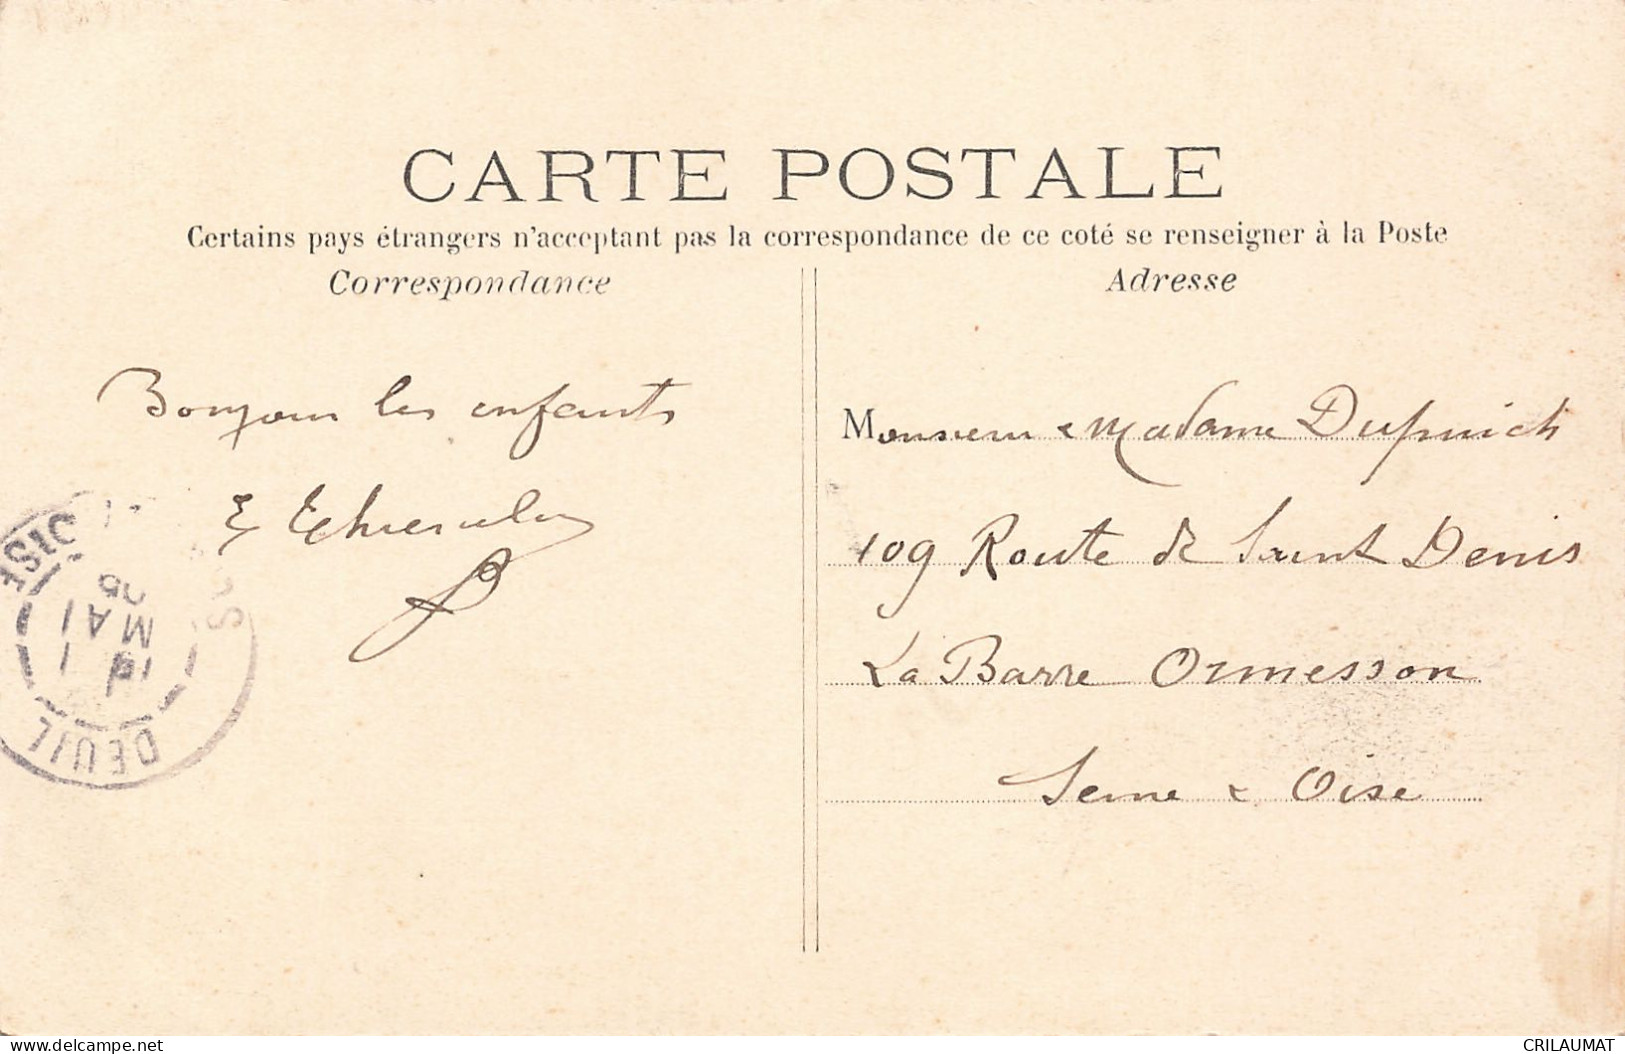 CARTE POSTALE
Certains pays étrangers n'acceptant pas la correspondance de ce coté se renseigner à la Poste
Correspondance
Adresse
Bonjour les enfants
E
Monsieur & Madame
109 Route de Saint Denis
La Barre Ormesson
Seine & Oise
DEUIL
OISE
MAI
05
CRILAUMAT